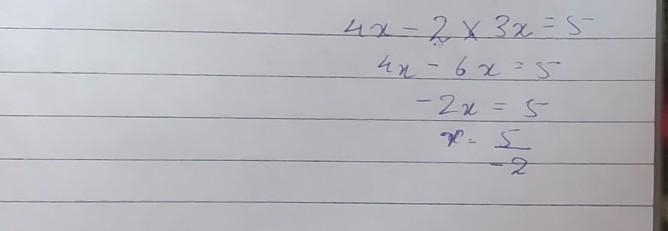 4x - 2 × 3x = 5
4x - 6x = 5
-2x = 5
x = 5/-2